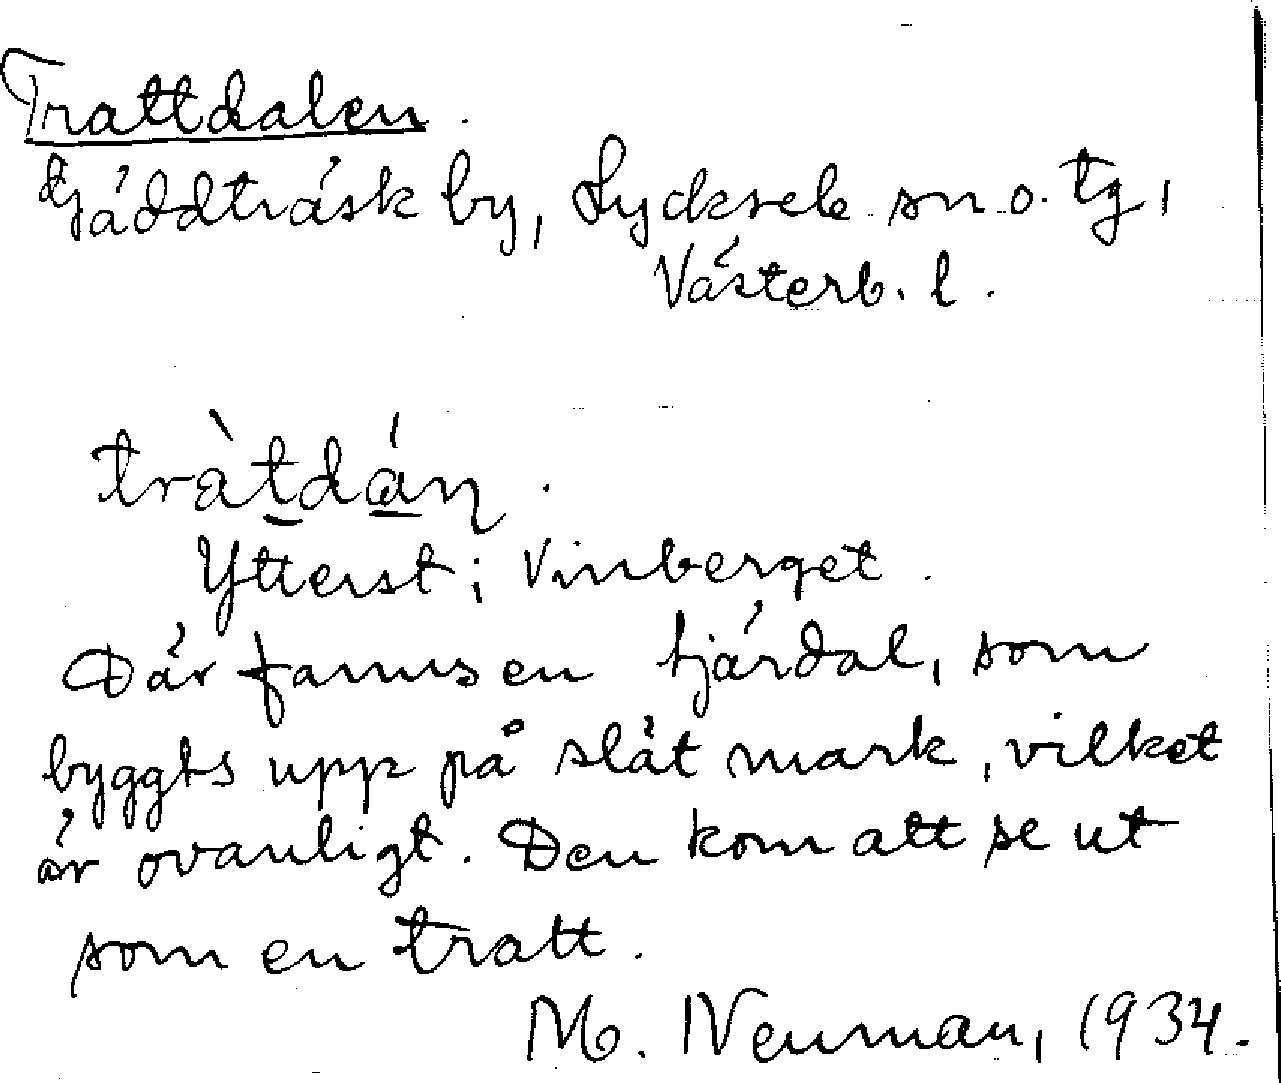 Trattdalen.
Gäddträsk by, Lycksele sn o. tg,
Västerb. l.
tràt̲dá̲ŋ.
Ytterst i Vinberget.
Där fanns en tjärdal, som
byggts upp på slät mark, vilket
är ovanligt. Den kom att se ut
som en tratt.
M. Neuman, 1934.